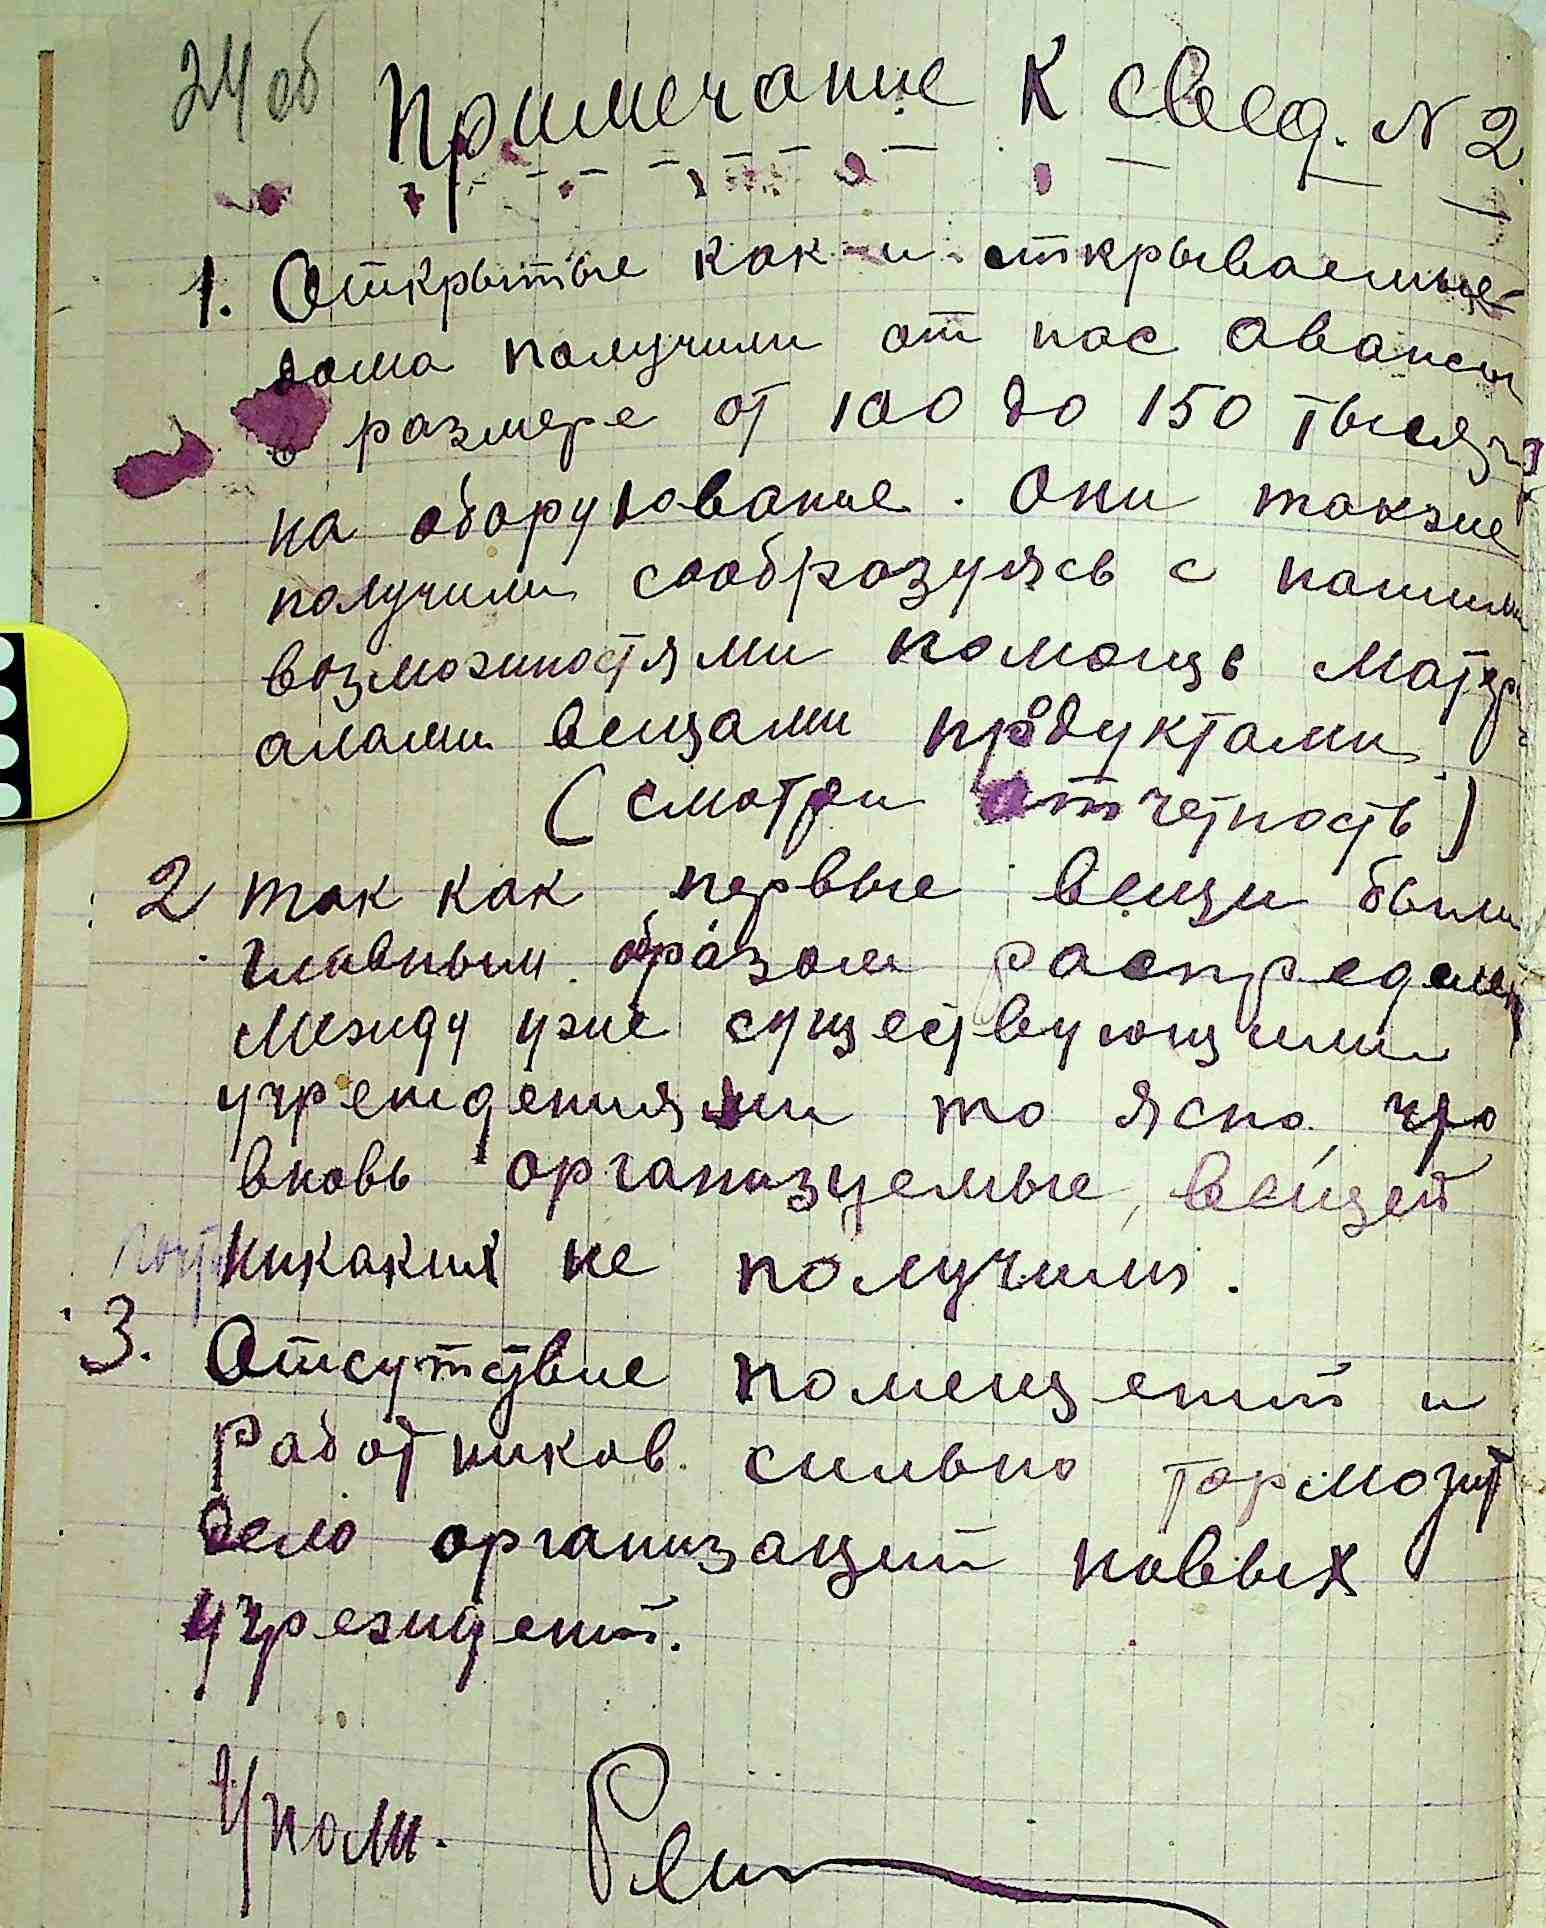 24 об
Примечание к свед. N 2.
1. Открытые как и открываемые
дома получили от нас авансы
в размере от 100 до 150 тысяч
на оборудование. Они также
получили сообразуясь с нашими
возможностями помощь матери
алами вещами продуктами
(смотри отчетность)
2 так как первые вещи были
главным образом распределены
между уже существующими
учреждениями то ясно, что
вновь организуемые, вещей
почти никаких не получили.
3. Отсутствие помещений и
работников сильно тормозит
дело организаций новых
учреждений.
Упол.